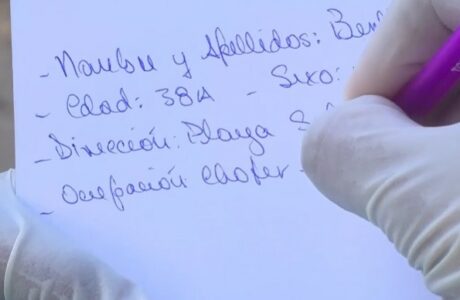 - Nombre y Apellidos: Ben
- Edad: 38A - Sexo:
- Dirección: Playa
- Ocupación Chofer -